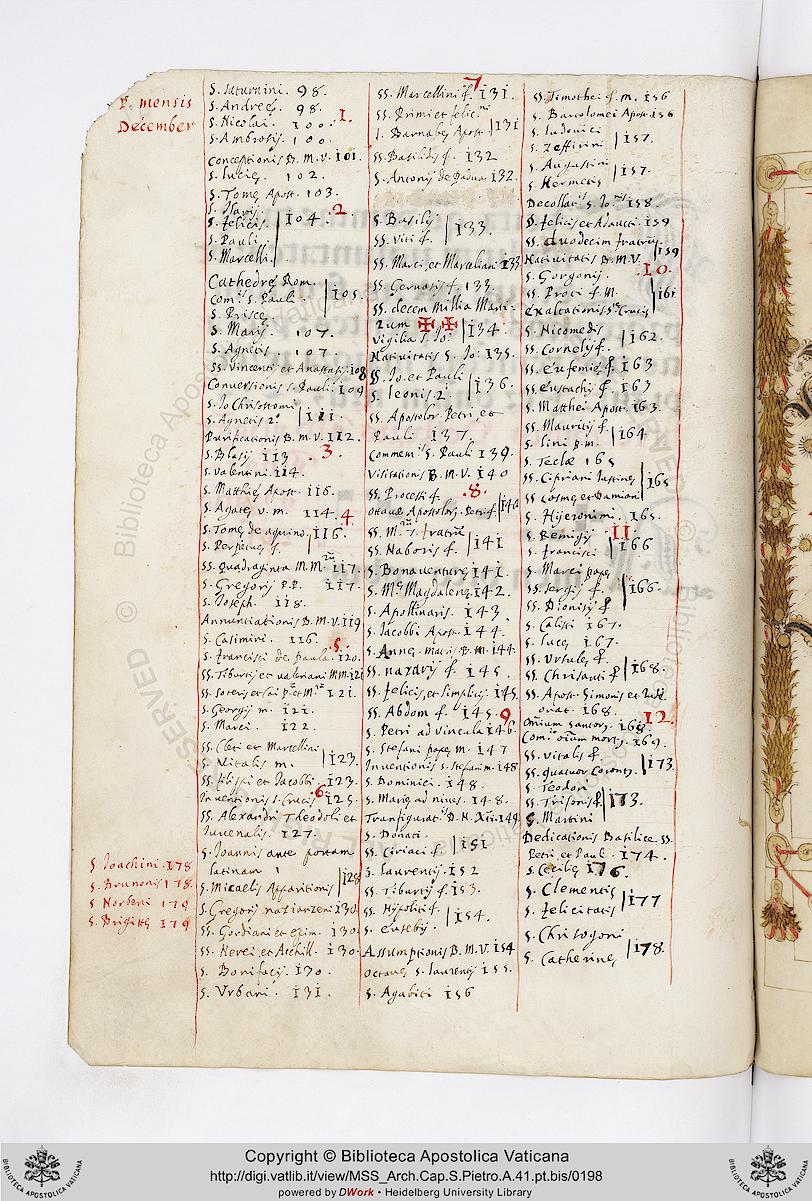 P. mensis
December
S. Saturnini. 98.
S. Andreę. 98.
S. Nicolai. 100. 1.
S. Ambrosij. 100.
Conceptionis B. M. V. 101.
S. Lucię. 102.
S. Tomę Apost. 103.
S. Hilarij. 2
S. Felicis. 104.
S. Pauli.
S. Marcelli.
Cathedrę Rom.
Com. S. Pauli. 105.
S. Priscę.
S. Marij. 107.
S. Agnetis 107.
SS. Vincentij et Anastasij. 108
Conversionis S. Pauli. 109
S. Jo Chrisostomi
S. Agnetis 2. 111.
Purificationis B. M. V. 112.
S. Blasij 113 . 3.
S. Valentini. 114.
S. Matthię Apost. 116.
S. Agatę v. m. 114. 4
S. Tomę de aquino. 116.
S. Perpetuę f.
SS. Quadraginta M. M. 117.
S. Gregorij P.P. 117.
S. Joseph. 118.
Annuntiationis B. M. V. 119
S. Casimiri. 116.
.5.
S. Francisci de paula. 120.
SS. Tiburtij et valeriani MM. 121
SS. Soteris et Caij 121.
S. Georgij m. 121.
S. Marci. 122.
SS. Cleti et Marcellini
S. Vitalis m. 123.
SS. Filippi et Jacobbi. 123.
.6.
Inventionis S. Crucis 125.
SS. Alexandri Theodoli et
Juvenalis. 127.
S. Joannis ante portam
latinam
S. Micaelis Apparitionis 128
S. Gregorij nazianzeni 130
SS. Gordiani et Epim. 130.
SS. Nerei et Archill. 130.
S. Bonifacij. 130.
S. Urbani. 131.
S. Joachini. 178
S. Brunonis 178.
S. Norberti 179
S. Brigittę 179
7.
SS. Marcellini f. 131.
SS. Primi et felic.
S. Barnabę Apost. 131
SS. Basilidis f. 132
S. Antonij de Padua 132.
S. Basilij
SS. Viti f. 133.
SS. Marci, et Marceliani 133
SS. Gervasij f. 133.
SS. decem Millia Marti-
rum ✠ ✠
Vigilia S. Jo: 134.
Nativitatis S. Jo: 135.
SS. Jo et Pauli
S. Leonis 2. 136.
SS. Apostolor Petri, et
Pauli 137.
Commem. S. Pauli 139.
Visitationis B. M. V. 140
SS. Processi f. .8.
Octavę Apostolor. Petri f. 140
SS. M. 7. fratrū
SS. Naboris f. 141
S. Bonaventurę 141.
S. M. Magdalenę 142.
S. Apollinaris. 143.
S. Jacobbi Apost. 144.
S. Annę Matris B. M. 144.
SS. nazarij f. 145.
SS. Felicis, et Simplicij. 145.
SS. Abdom f. 145. 9
S. Petri ad vincula 146.
S. Stefani papę m. 147
Inventionis S. Stefani m. 148
S. Dominici. 148.
S. Marię ad nives. 148.
Transfigurat. D. N. Xti. 149.
S. Donati.
SS. Ciriaci f. 151
S. Laurentij. 152
SS. Tiburtij f. 153.
SS. Hypoliti f.
S. Eusebij. 154.
Assumptionis B. M. V. 154
Octavę S. Laurentij 155.
S. Agabiti 156
SS. Timothei f. m. 156
S. Bartolomei Apost. 156
S. Ludovici
S. Zeffirini 157.
S. Augustini
S. Hermetis 157.
Decollat. S. Jo. 158.
S. Felicis et Adaucti. 159
SS. duodecim fratrum.
Nativitatis B. M. V. 159
S. Gorgonij. .10.
SS. Proti f. M. 161
Exaltationis Crucis
S. Nicomedis
SS. Cornelij f. 162.
SS. Eufemię f. 163
SS. Eustachij f. 163
S. Matthei Apost. 163.
SS. Mauritij f.
S. Lini p. m. 164
S. Teclæ 165
SS. Cipriani Iustinę 165
SS Cosmę et Damiani
S. Hijeronimi. 165.
S. Remigij 11
S. Francisci 166
S. Marci papę
SS. Sergij f. 166.
SS. Dionisij f
S. Calisti 167.
S. Lucę 167.
SS. Ursulę f.
SS. Chrisanti f 168.
SS. Apost. Simonis et Judę
oriat. 168.
12.
Omnium Santor. 168.
Com. oium mort. 169.
SS. Vitalis f.
SS. quatuor Coronat. 173
S. Teodori
SS. Trifonis f. 173.
S. Martini
Dedicationis Basilice SS.
Petri, et Pauli. 174.
S. Cecilię 176.
S. Clementis
S. Felicitatis 177
S. Chrisogoni
S. Catherinę 178.
Copyright © Biblioteca Apostolica Vaticana
http://digi.vatlib.it/view/MSS_Arch.Cap.S.Pietro.A.41.pt.bis/0198
powered by DWork • Heidelberg University Library